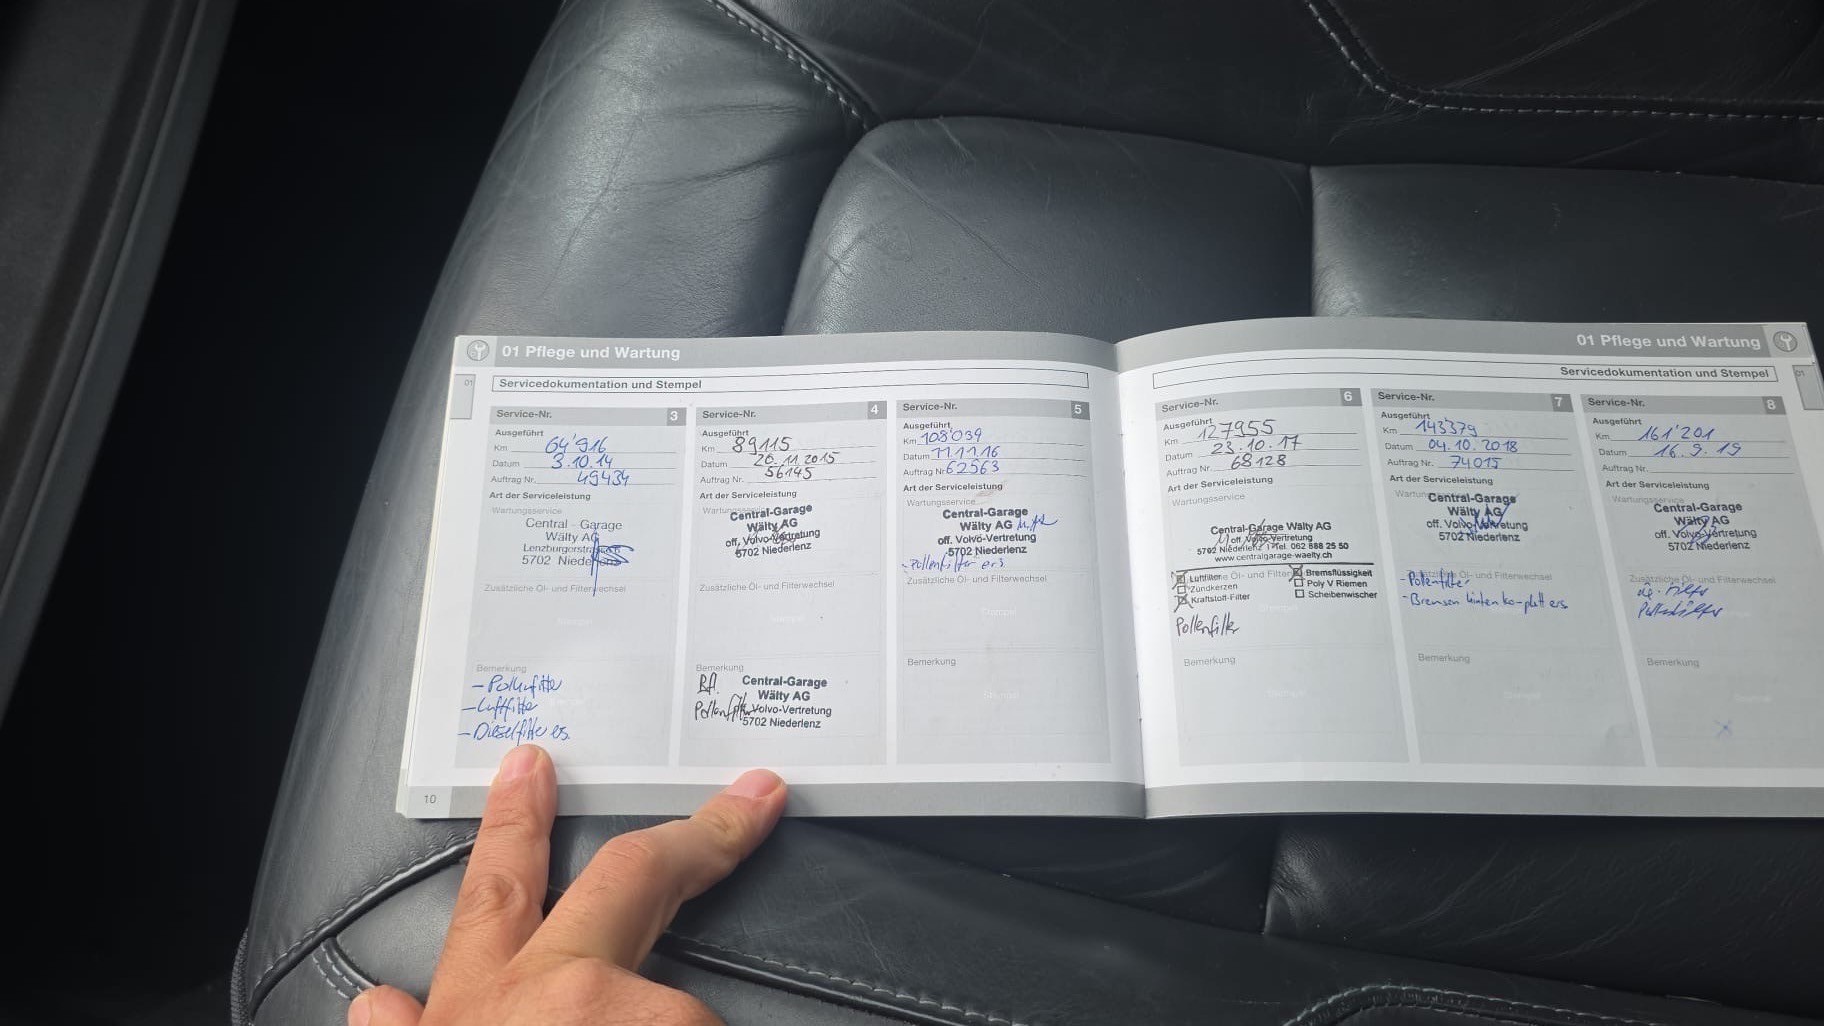 01 Pflege und Wartung
01
Servicedokumentation und Stempel
Service-Nr. 3
Ausgeführt
Km 64'916
Datum 3.10.14
Auftrag Nr. 49434
Art der Serviceleistung
Wartungsservice
Central - Garage
Wälty AG
5702
Zusätzliche Öl- und Filterwechsel
Bemerkung
- Pollenfilter
- Luftfilter
- Dieselfilter es.
Service-Nr. 4
Ausgeführt
Km 89115
Datum 26.11.2015
Auftrag Nr. 56145
Art der Serviceleistung
Central-Garage
Wälty AG
off. Volvo-Vertretung
5702 Niederlenz
Zusätzliche Öl- und Filterwechsel
Bemerkung
Central-Garage
Wälty AG
Pollenfilter Volvo-Vertretung
5702 Niederlenz
Service-Nr. 5
Ausgeführt
Km 108'039
Datum 11.11.16
Auftrag Nr. 62563
Art der Serviceleistung
Wartungsservice
Central-Garage
Wälty AG
off. Volvo-Vertretung
5702 Niederlenz
- Pollenfilter ers
Zusätzliche Öl- und Filterwechsel
Stempel
Bemerkung
Stempel
10
01 Pflege und Wartung
01
Servicedokumentation und Stempel
Service-Nr. 6
Ausgeführt
Km 127955
Datum 23.10.17
Auftrag Nr. 68128
Art der Serviceleistung
Wartungsservice
Central-Garage Wälty AG
off. Volvo-Vertretung
5702 Niederlenz Tel. 062 888 25 50
www.centralgarage-waelty.ch
Luftfilter Bremsflüssigkeit
Zündkerzen Poly V Riemen
Kraftstoff-Filter Scheibenwischer
Pollenfilter
Bemerkung
Service-Nr. 7
Ausgeführt
Km 143379
Datum 04.10.2018
Auftrag Nr. 74015
Art der Serviceleistung
Central-Garage
Wälty AG
off. Volvo-Vertretung
5702 Niederlenz
- Pollenfilter
- Bremsen hinten komplett ers
Bemerkung
Service-Nr. 8
Ausgeführt
Km 161'201
Datum 16.9.19
Auftrag Nr.
Art der Serviceleistung
Wartungsservice
Central-Garage
Wälty AG
off. Volvo-Vertretung
5702 Niederlenz
Zusätzliche Öl- und Filterwechsel
Pollenfilter
Bemerkung